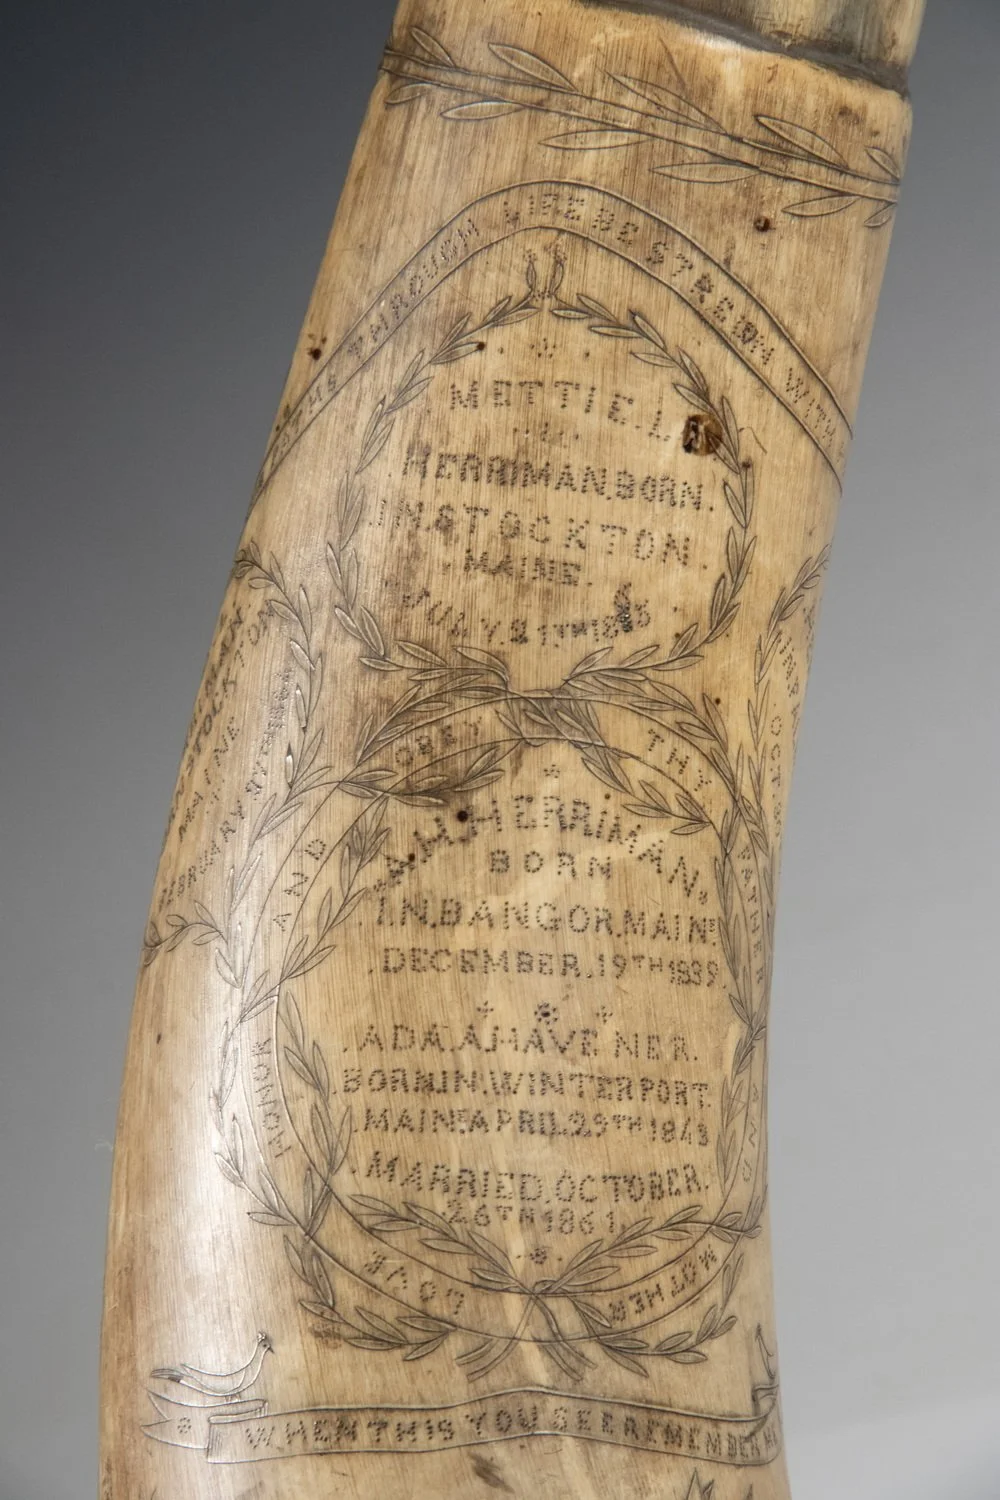 THROUGH LIFE BE STREWN WITH
METTIE.L.
HERRIMAN.BORN.
IN.STOCKTON.
MAINE.
JULY.21TH18
MAN
STOCK TON
MAINE
OCT.
LOVE HONOR AND OBEY THY FATHER AND MOTHER
A.H.HERRIMAN.
BORN
IN.BANGOR.MAINE
DECEMBER.19TH1839.
ADA.A.HAVENER.
BORN.IN.WINTERPORT.
MAINE.APRIL.29TH1843
MARRIED.OCTOBER.
26TH1861.
WHEN THIS YOU SEE REMEMBER